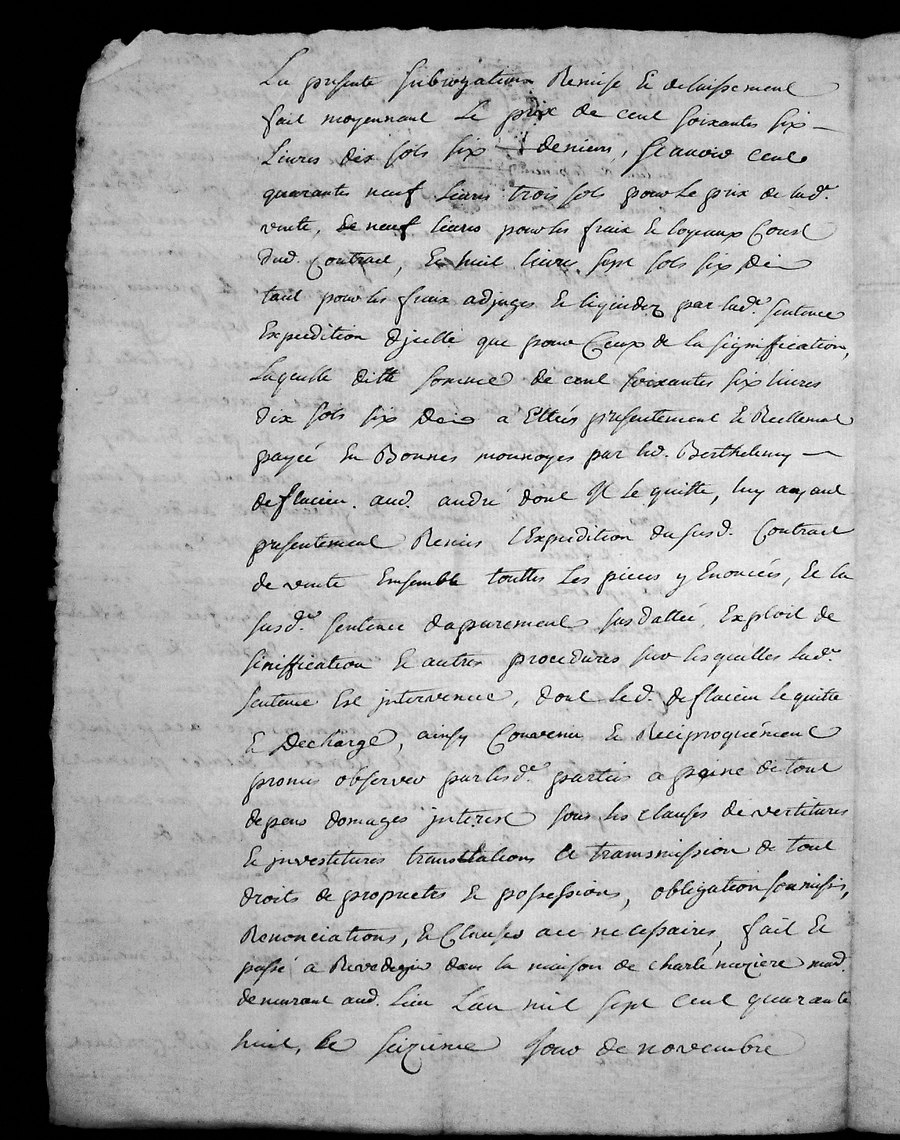 La presente subrogation Remise Et delaissement
fait moyennant Le prix de cent soixantes six
Livres dix sols six deniers, scauoir cent
quarantes neuf Liures trois sols pour Le prix de lad.e
vente, de neuf liures pour les fraix Et loyeaux Coust
dud. Contract, Et huit liures sept sols six De
tant pour les fraix adjuges Et liquidez par lad.e sentence
Expedition d'jcelle que pour Ceux de la signification,
Laquelle ditte somme de cent soixantes six liures
dix sols six De a Ettés presentement Et Reellement
payée En Bonnes monnoyes par led. Berthelemy
deflacieu aud. andré dont Il Le quitte, luy ayant
presentement Remis l'Expedition du susd. Contract
de vente Ensemble touttes Les pieces y Enoncées, Et la
susd.e sentence dapurement susdattée, Exploit de
sinification Et autres procedures sur lesquelles lad.e
sentence Est jntervenue, dont led. deflacieu le quitte
Et Decharge, ainsy Convenu Et Reciproquement
promis observer par lesd.es parties a peine de tout
depens domages jnterest sous les clauses de vertitures
Et jnvestitures transtlations Et transmission de tout
droits de proprietes Et possessions, obligation soumissis,
Renonciations, Et Clauses a ce necessaires, fait Et
passé a dans la maison de charle mad.
demurant aud. Lieu L'an mil sept cent quarante
huit, Le seizieme Jour de novembre